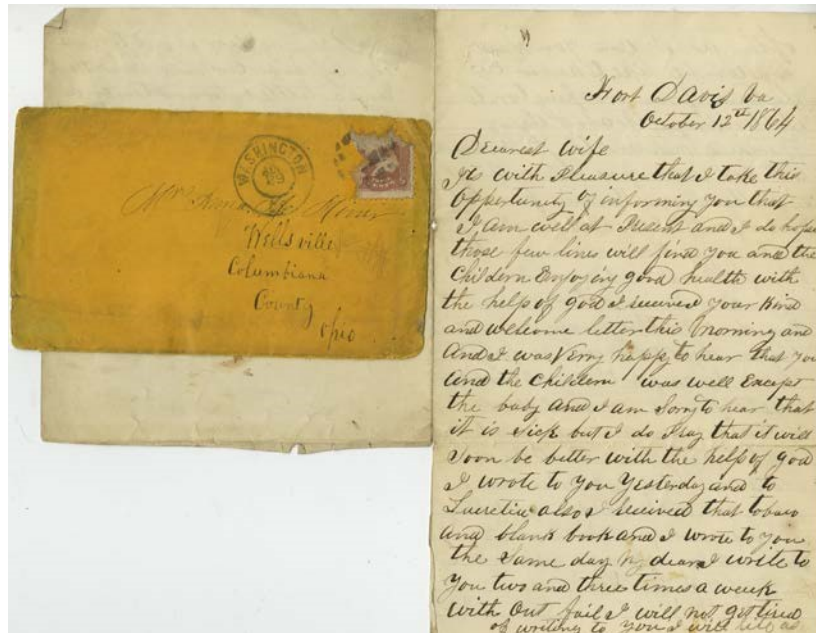 WASHINGTON
Wellsville
Columbiana
County
Ohio
Fort Davis Va
October 12th 1864
Dearest wife
Its with Pleasure that I take this
Opportunity of informing you that
I am well at Present and I do hope
those few lines will find you and the
Childern Enjoying good health with
the help of god I received your Kind
and welcome letter this morning and
And I was Verry happy to hear that you
and the Childern was well Except
the baby and I am Sorry to hear that
it is sick but I do Pray that it will
Soon be better with the help of god
I wrote to you Yesterday and to
Lucretia also I received that tobaco
and blank book and I wrote to you
the Same day My dear I write to
you two and three times a week
with Out fail I will not get tired
of writing to you I will